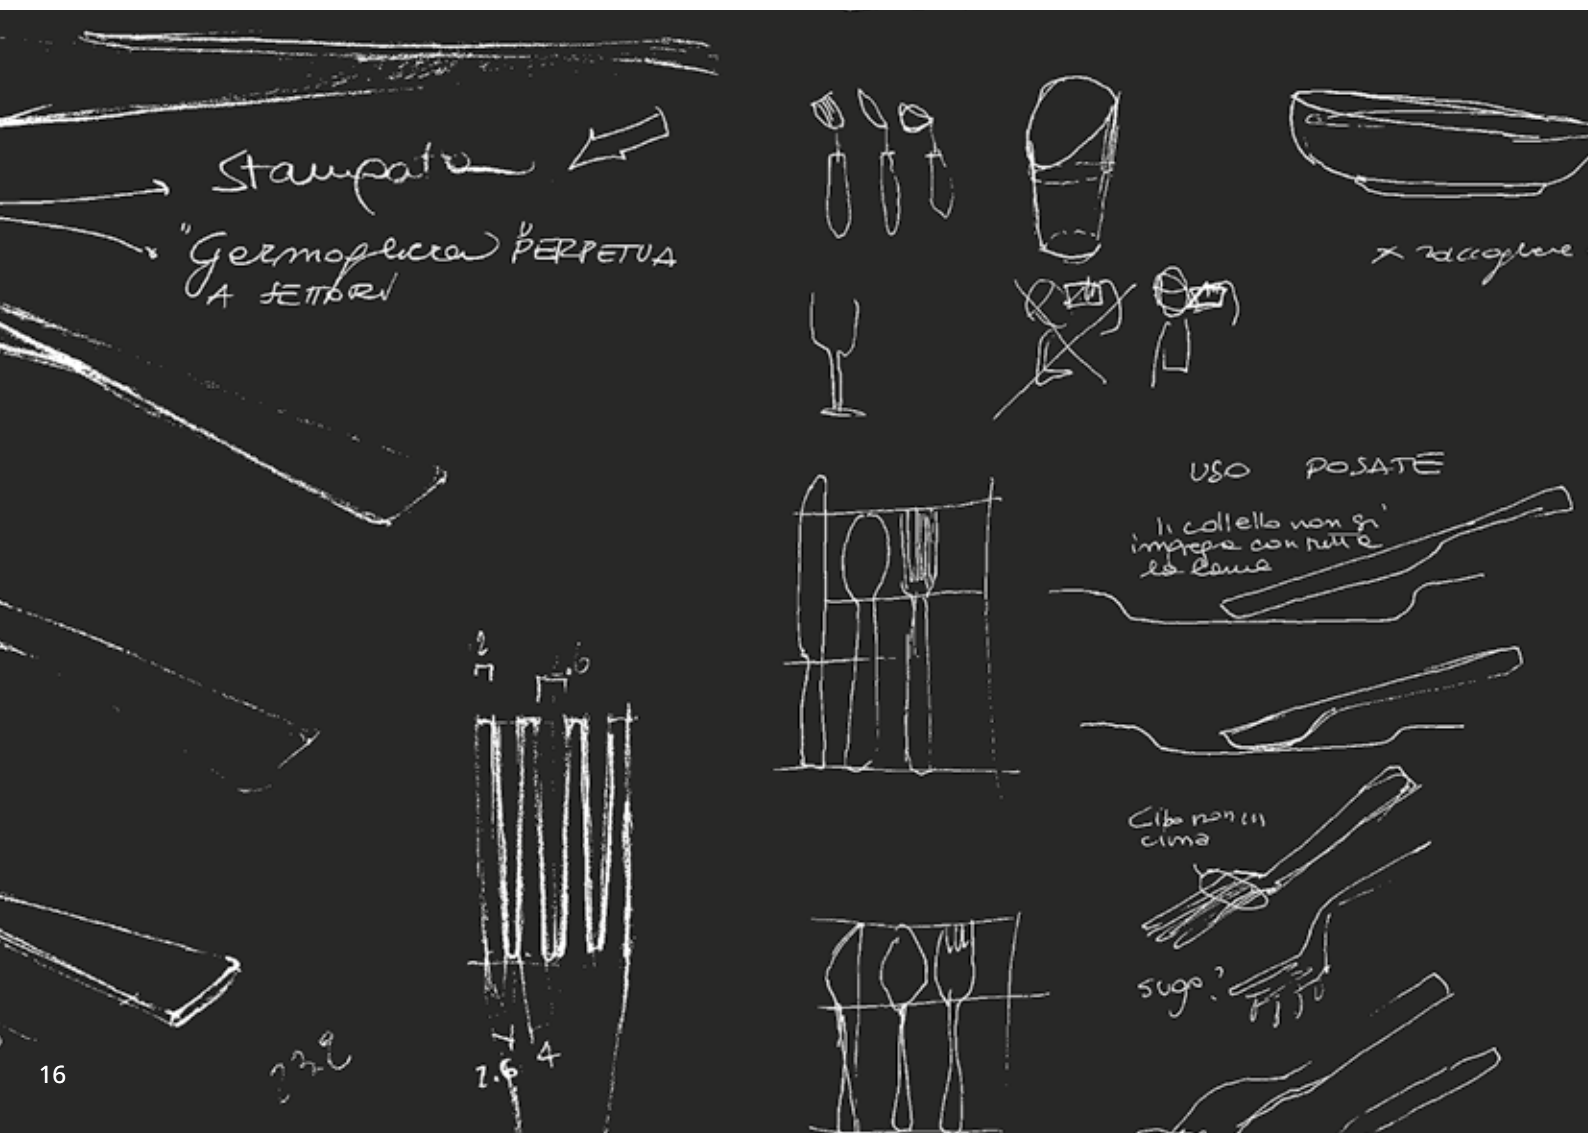 Stampata
"Germoglicera" PERPETUA
A SETTORI
x raccogliere
USO POSATE
Il coltello non si
impegna con tutta
la lama
2
.6
Cibo non in
cima
sugo?
4
2.6
232
16